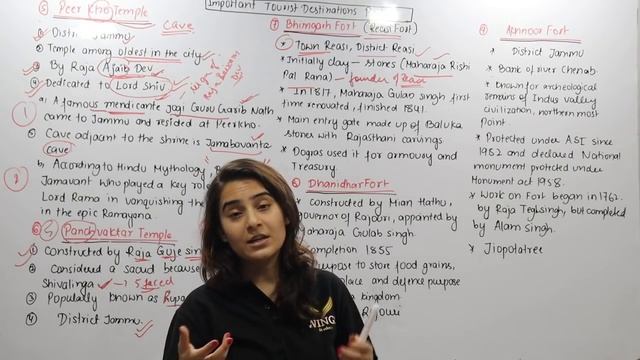 Important Tourist Destinations
⑤ Peer Kho Temple
Cave
① District Jammu
② Temple among oldest in the city
③ By Raja Ajaib Dev
④ Dedicated to Lord Shiv
a) A famous mendicante jogi Guru Garib Nath
came to Jammu and resided at Peerkho.
⑤ Cave adjacent to the shrine is Jambavanta
cave
b. According to Hindu Mythology,
Jamavant who played a key role
Lord Rama in vanquishing the
in the epic Ramayana.
⑥ Panchvaktar Temple
① Constructed by Raja Guje sin
② Considered a sacred because
Shivalinga → 5 faced
③ Popularly known as Rupa
④ District Jammu.
⑦ Bhimgarh Fort (Reasi Fort)
* Town Reasi, District Reasi
* Initially clay - stones (Maharaja Rishi
Pal Rana) - founder of Reasi
* In 1817, Maharaja Gulab singh first
time renovated, finished 1841.
* Main entry gate made up of Baluka
stones with Rajasthani carvings
* Dogras used it for armoury and
Treasury.
⑧ Dhanidhar Fort
constructed by Mian Hathu,
governor of Rajouri, appointed by
Maharaja Golab singh.
Completion 1855
purpost to store food grains,
place and defence purpose
kingdom
⑨ Akhnoor Fort
* District Jammu
* Bank of river Chenab.
* Known for archeological
remains of Indus valley
civilization, northern most
point.
* Protected under ASI since
1982 and declared National
monument protected under
Monument act 1958.
* Work on Fort began in 1762
by Raja Tegh singh, but completed
by Alam singh.
* Jiopotatree
WING